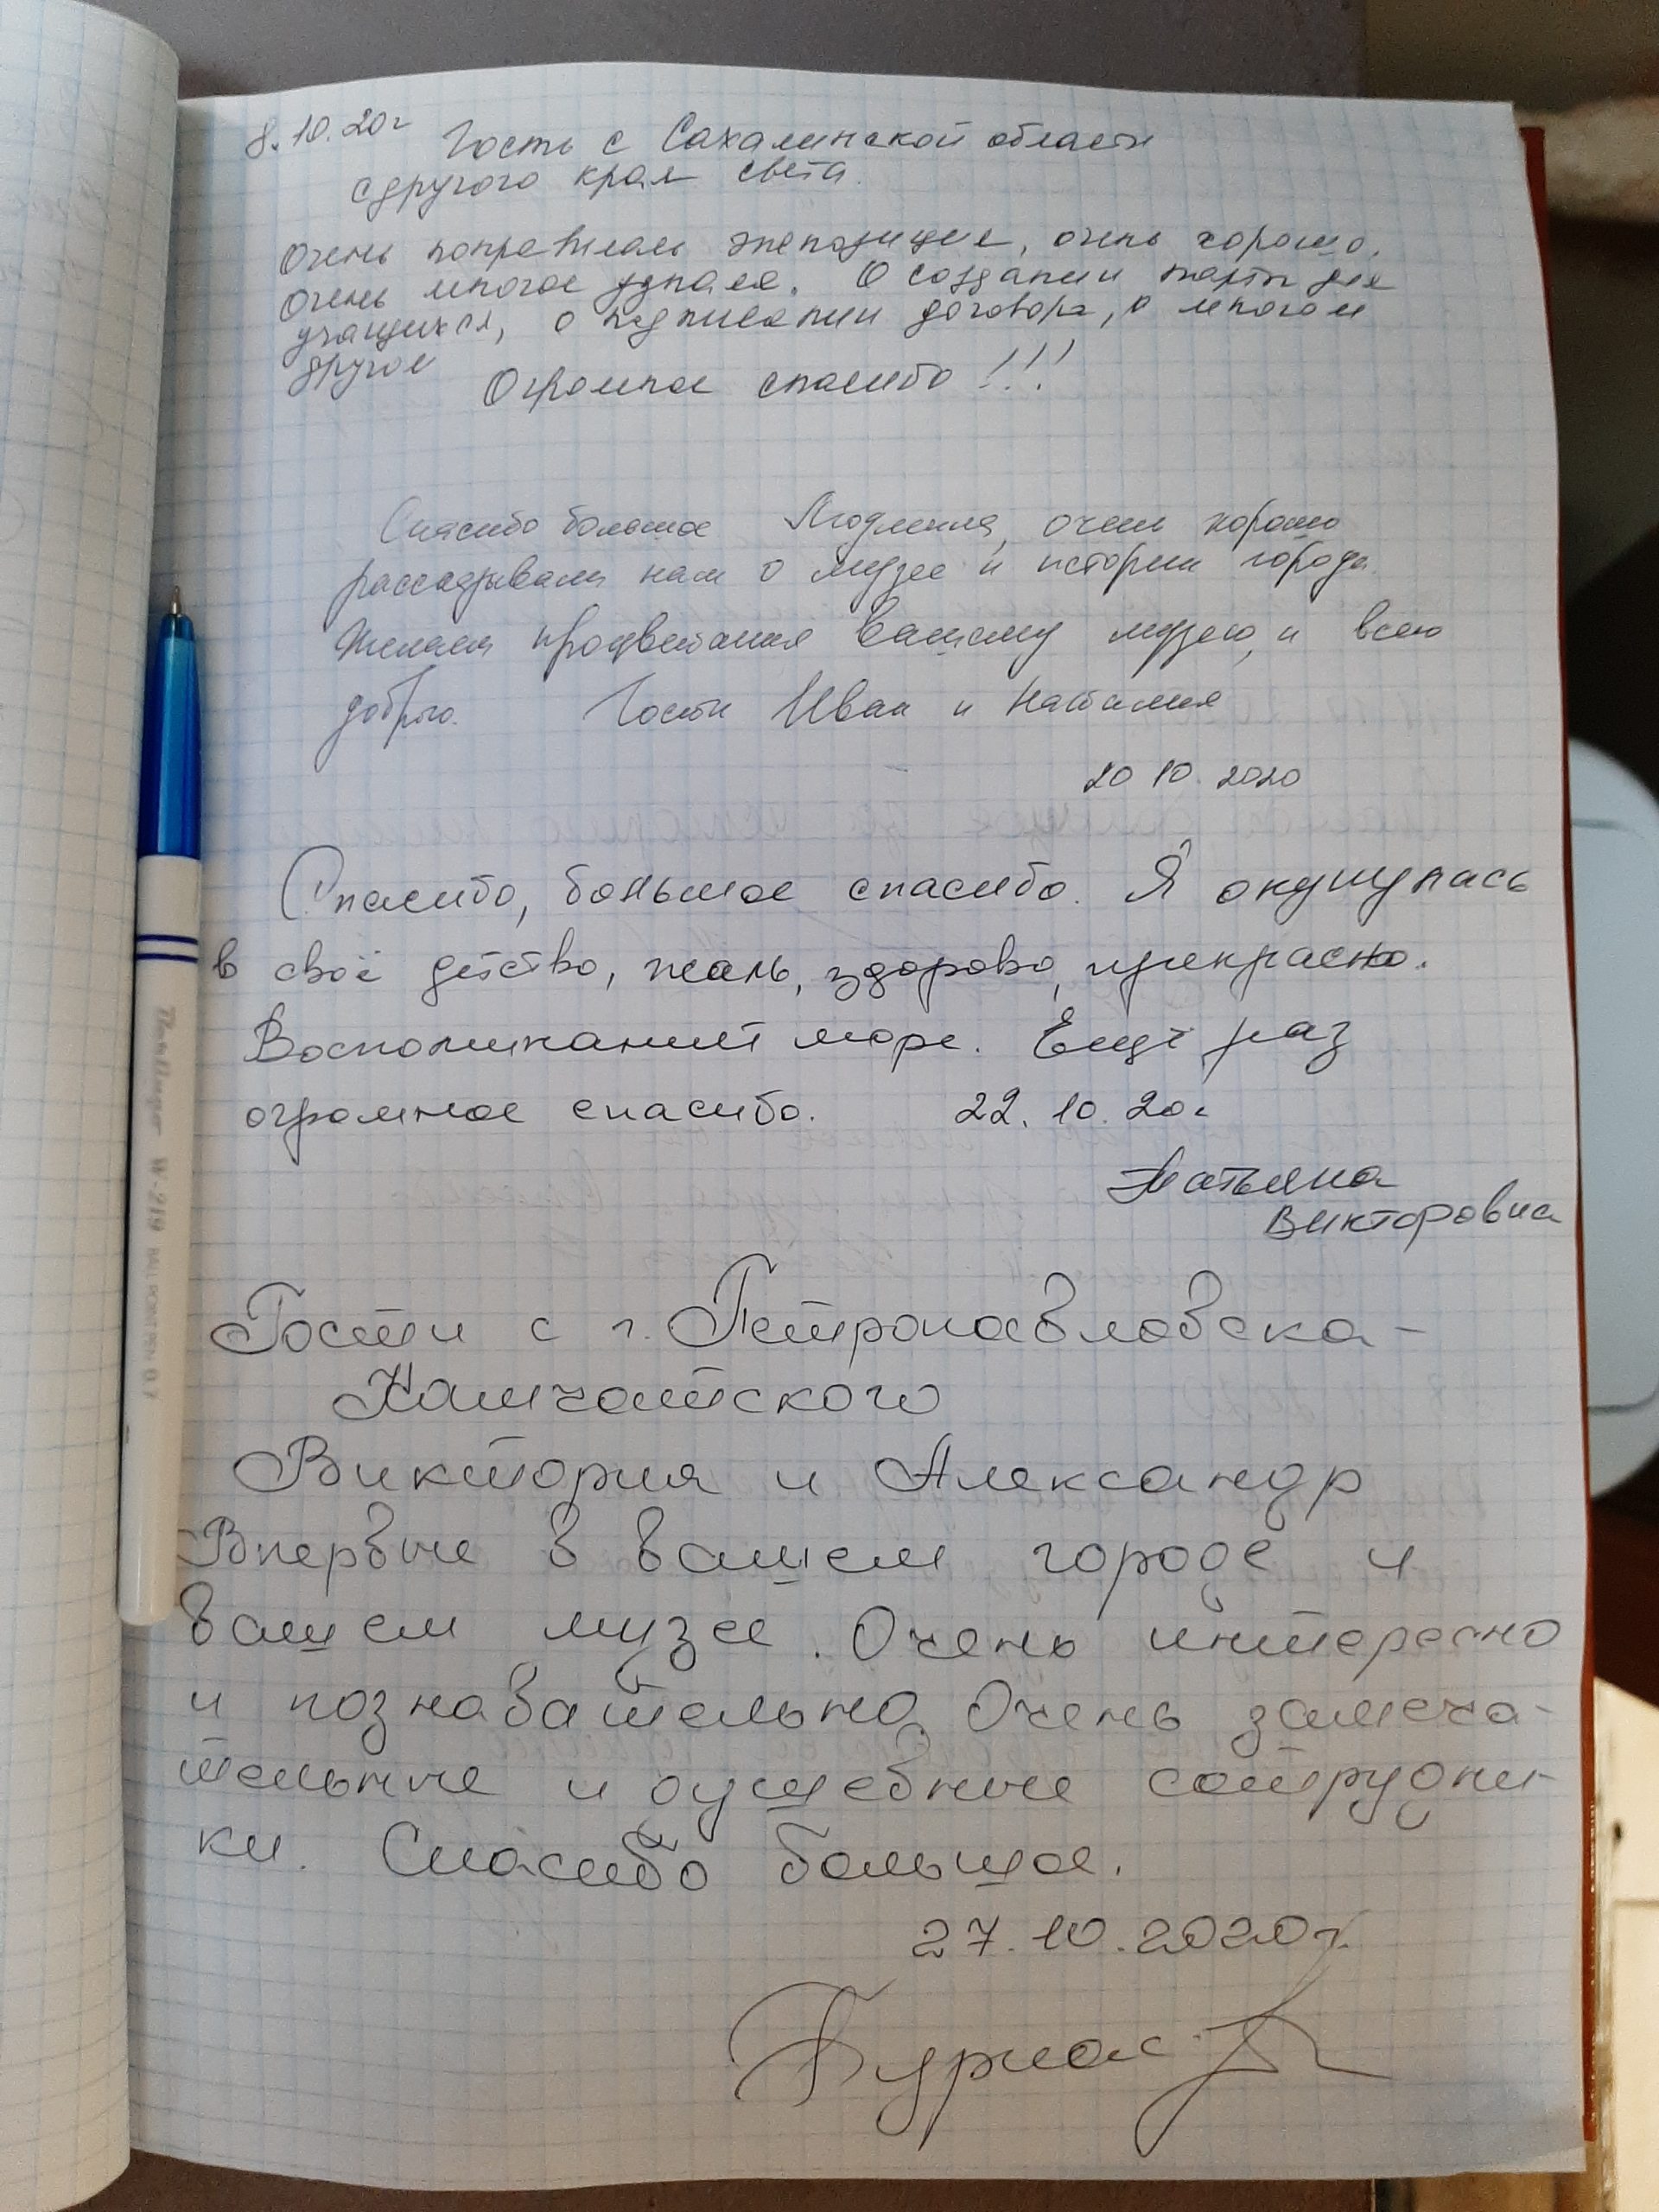 8.10.20г Гость с Сахалинской области
с другого края света.
Очень понравилась экспозиция, очень хорошо.
Очень много узнала. О создании парты для
учащихся, о подписании договора, о многом
другое
Огромное спасибо!!!
Спасибо большое Людмила, очень хорошо
рассказывали нам о музее и истории города.
Желаем процветания Вашему музею, и всего
доброго. Гости Иван и Наталия
20 10. 2020
Спасибо, большое спасибо. Я окунулась
в своё детство, жаль, здорово, прекрасно.
Воспоминаний море. Ещё раз
огромное спасибо. 22.10.20г
Татьяна
Викторовна
Гости с г. Петропавловска-
Камчатского
Виктория и Александр
Впервые в вашем городе и
вашем музее. Очень интересно
и познавательно. Очень замеча-
тельные и душевные сотрудни-
ки. Спасибо большое.
27.10.2020г.